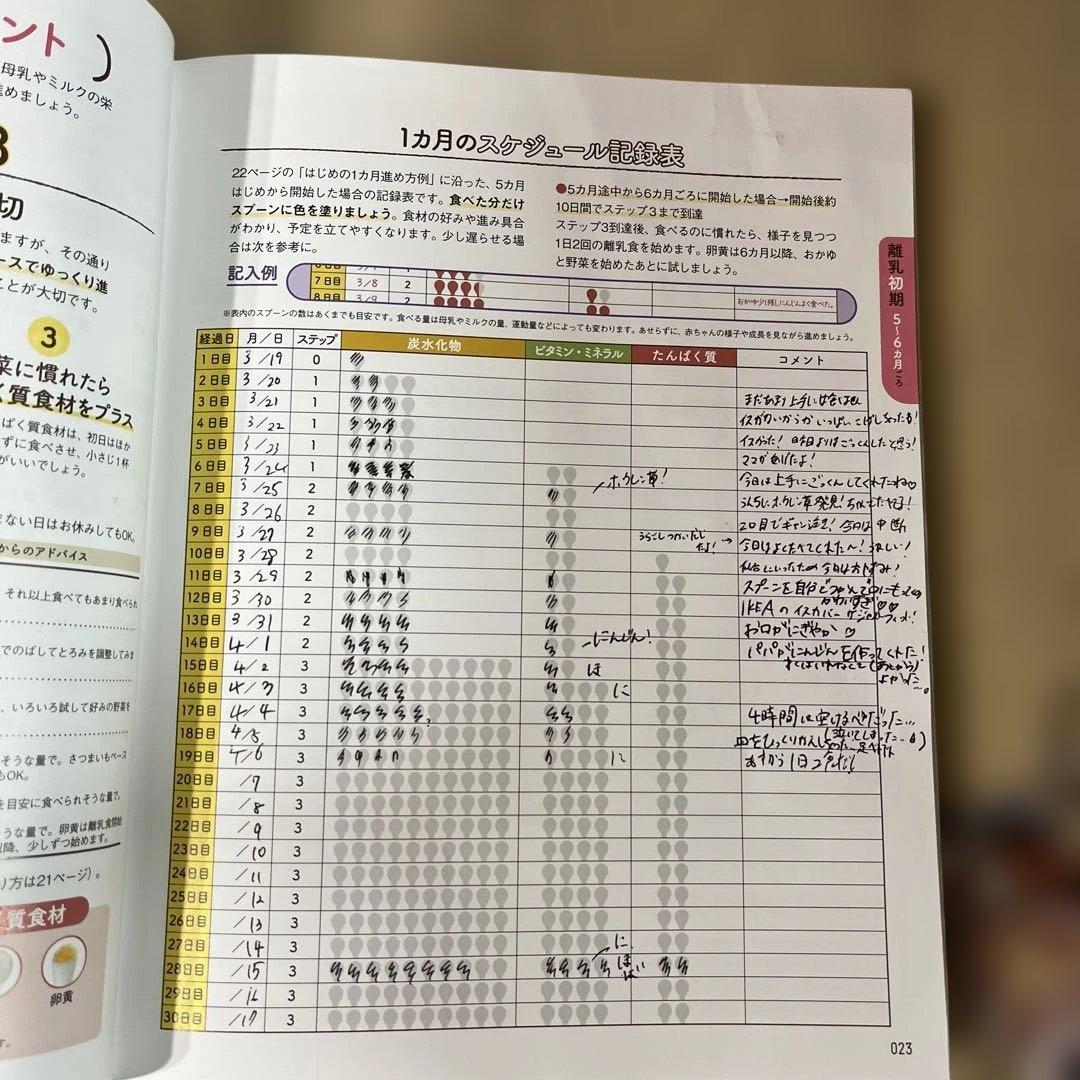 ント
母乳やミルクの栄
進めましょう。
切
ますが、その通り
ースでゆっくり進
ことが大切です。
3
菜に慣れたら
く質食材をプラス
ぱく質食材は、初日はほか
ずに食べさせ、小さじ1杯
がいいでしょう。
まない日はお休みしてもOK。
からのアドバイス
それ以上食べてもあまり食べられ
でのばしてとろみを調整してみま
、いろいろ試して好みの野菜を
そうな量で。さつまいもペース
もOK。
を目安に食べられそうな量で。
うな量で。卵黄は離乳食開始
以降、少しずつ始めます。
り方は21ページ)。
質食材
卵黄
す。
1カ月のスケジュール記録表
22ページの「はじめの1カ月進め方例」に沿った、5カ月
はじめから開始した場合の記録表です。食べた分だけ
スプーンに色を塗りましょう。食材の好みや進み具合
がわかり、予定を立てやすくなります。少し遅らせる場
合は次を参考に。
●5カ月途中から6カ月ごろに開始した場合→開始後約
10日間でステップ3まで到達
ステップ3到達後、食べるのに慣れたら、様子を見つつ
1日2回の離乳食を始めます。卵黄は6カ月以降、おかゆ
と野菜を始めたあとに試しましょう。
離乳初期 5〜6カ月ごろ
記入例
7日目 3/8 2
8日目 3/9 2 おかゆ少し残し、にんじんよく食べた。
※表内のスプーンの数はあくまでも目安です。食べる量は母乳やミルクの量、運動量などによっても変わります。あせらずに、赤ちゃんの様子や成長を見ながら進めましょう。
経過日 月/日 ステップ 炭水化物 ビタミン・ミネラル たんぱく質 コメント
1日目 3/19 0
2日目 3/20 1
3日目 3/21 1 まだあまり上手には
4日目 3/22 1 イスが
5日目 3/23 1 イスかった!昨日よりはごっくんしたと思う!
6日目 3/24 1 ママがあげたよ!
7日目 3/25 2 ホウレン草! 今日は上手にごっくんしてくれたね♡
8日目 3/26 2 ホウレン草発見!
9日目 3/27 2 2口目でギャン泣き!今日は中断
10日目 3/28 2 今日はよくたべてくれた〜!うれしい!
11日目 3/29 2
12日目 3/30 2 スプーンを自分で
13日目 3/31 2 IKEAのイスカバー
14日目 4/1 2 にんじん! お口がにぎやか♡
15日目 4/2 3 ほ パパがにんじんを作ってくれた!
16日目 4/3 3 に よかった〜。
17日目 4/4 3 4時間は空けるべきだった…
18日目 4/5 3 (泣いてしまった…)
19日目 4/6 3 に あすから1日2食だ!
20日目 /7 3
21日目 /8 3
22日目 /9 3
23日目 /10 3
24日目 /11 3
25日目 /12 3
26日目 /13 3
27日目 /14 3
28日目 /15 3 に ほ
29日目 /16 3
30日目 /17 3
023